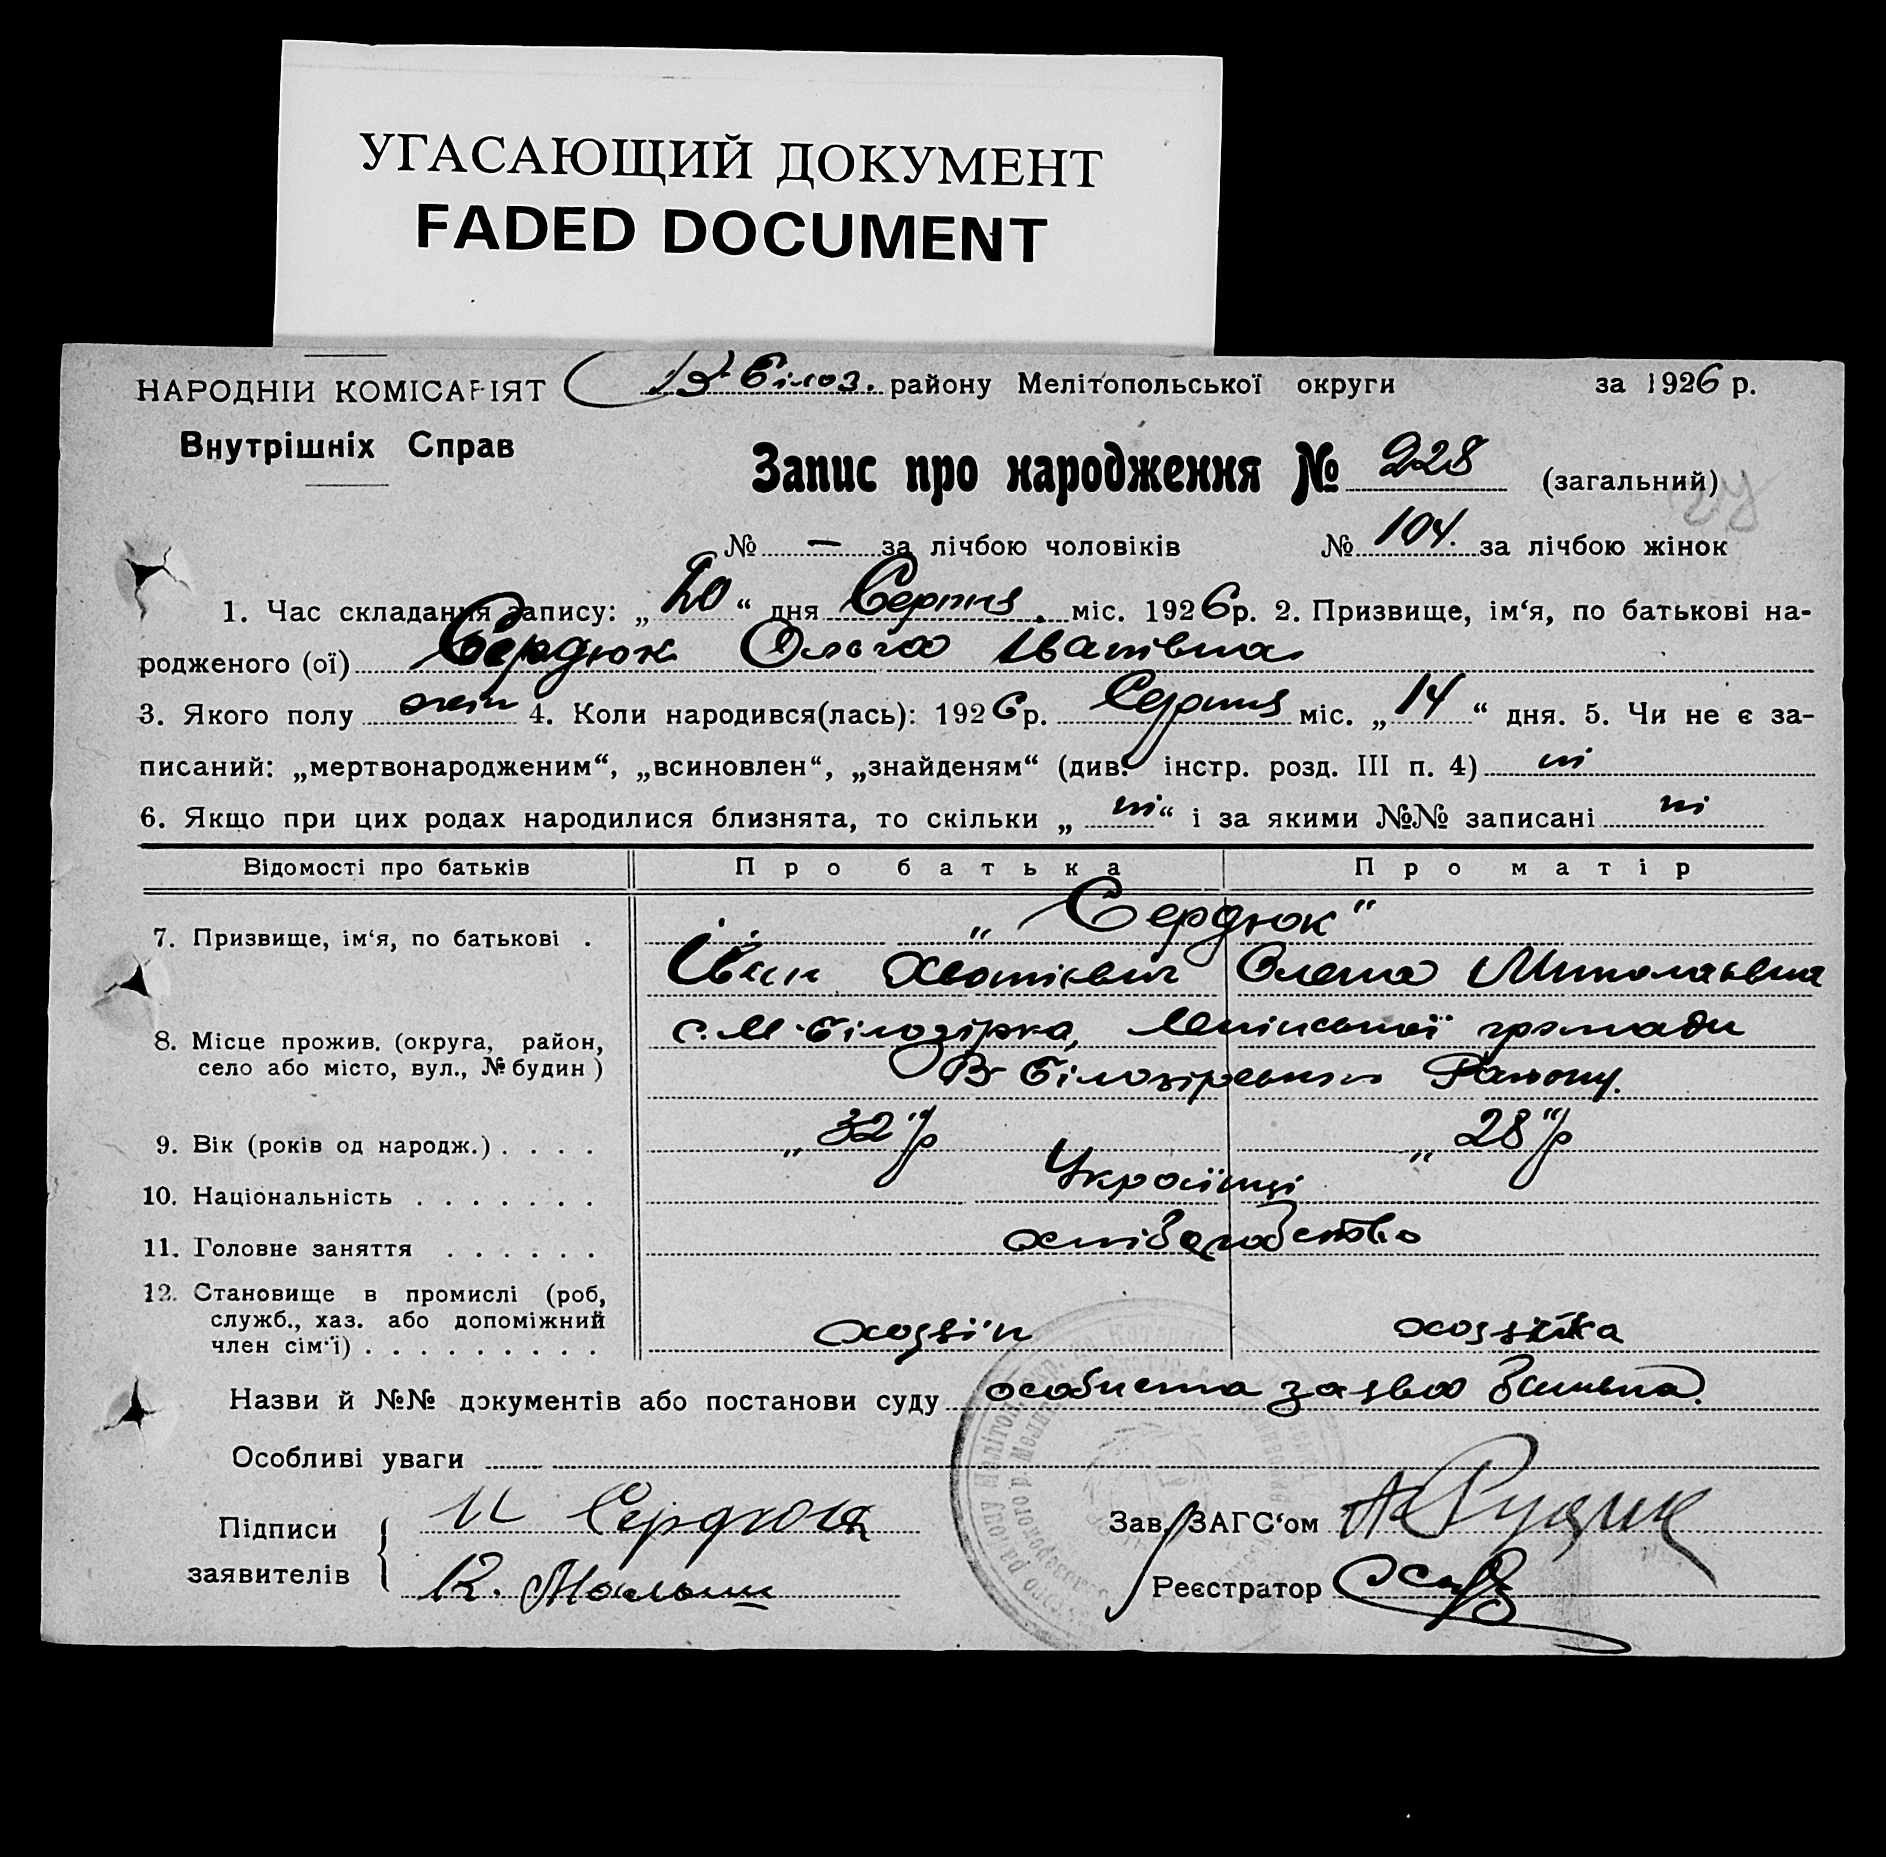 УГАСАЮЩИЙ ДОКУМЕНТ
FADED DOCUMENT
НАРОДНІЙ КОМІСАРІЯТ
Внутрішніх Справ
В Білоз. району Мелітопольської округи за 1926 р.
Запис про народження № 228 (загальний)
№ — за лічбою чоловіків № 104. за лічбою жінок
1. Час складання запису: „20“ дня Серпня міс. 1926 р. 2. Призвище, ім‘я, по батькові на-
родженого (ої) Сердюк Ольга Іванівна
3. Якого полу жін 4. Коли народився(лась): 1926 р. Серпня міс. „14“ дня. 5. Чи не є за-
писаний: „мертвонародженим“, „всиновлен“, „знайденям“ (див. інстр. розд. III п. 4) ні
6. Якщо при цих родах народилися близнята, то скільки „ні“ і за якими №№ записані ні
Відомості про батьків Про батька Про матір
7. Призвище, ім‘я, по батькові . „Сердюк“
Іван Хотієвич Олена Миколаївна
8. Місце прожив. (округа, район, село або місто, вул., № будин) с. М-Білозірка, громади
В-Білозірського Району.
9. Вік (років од народж.) . . . . „32“ р „28“ р
10. Національність . . . . . . . Українці
11. Головне заняття . . . . . . хліборобство
12. Становище в промислі (роб,
служб., хаз. або допоміжний
член сім‘ї) . . . . . . . . . хозяїн хозяйка
Назви й №№ документів або постанови суду особиста заява
Особливі уваги
Підписи
заявителів
И Сердюк
К.
Зав. ЗАГС‘ом
Реєстратор